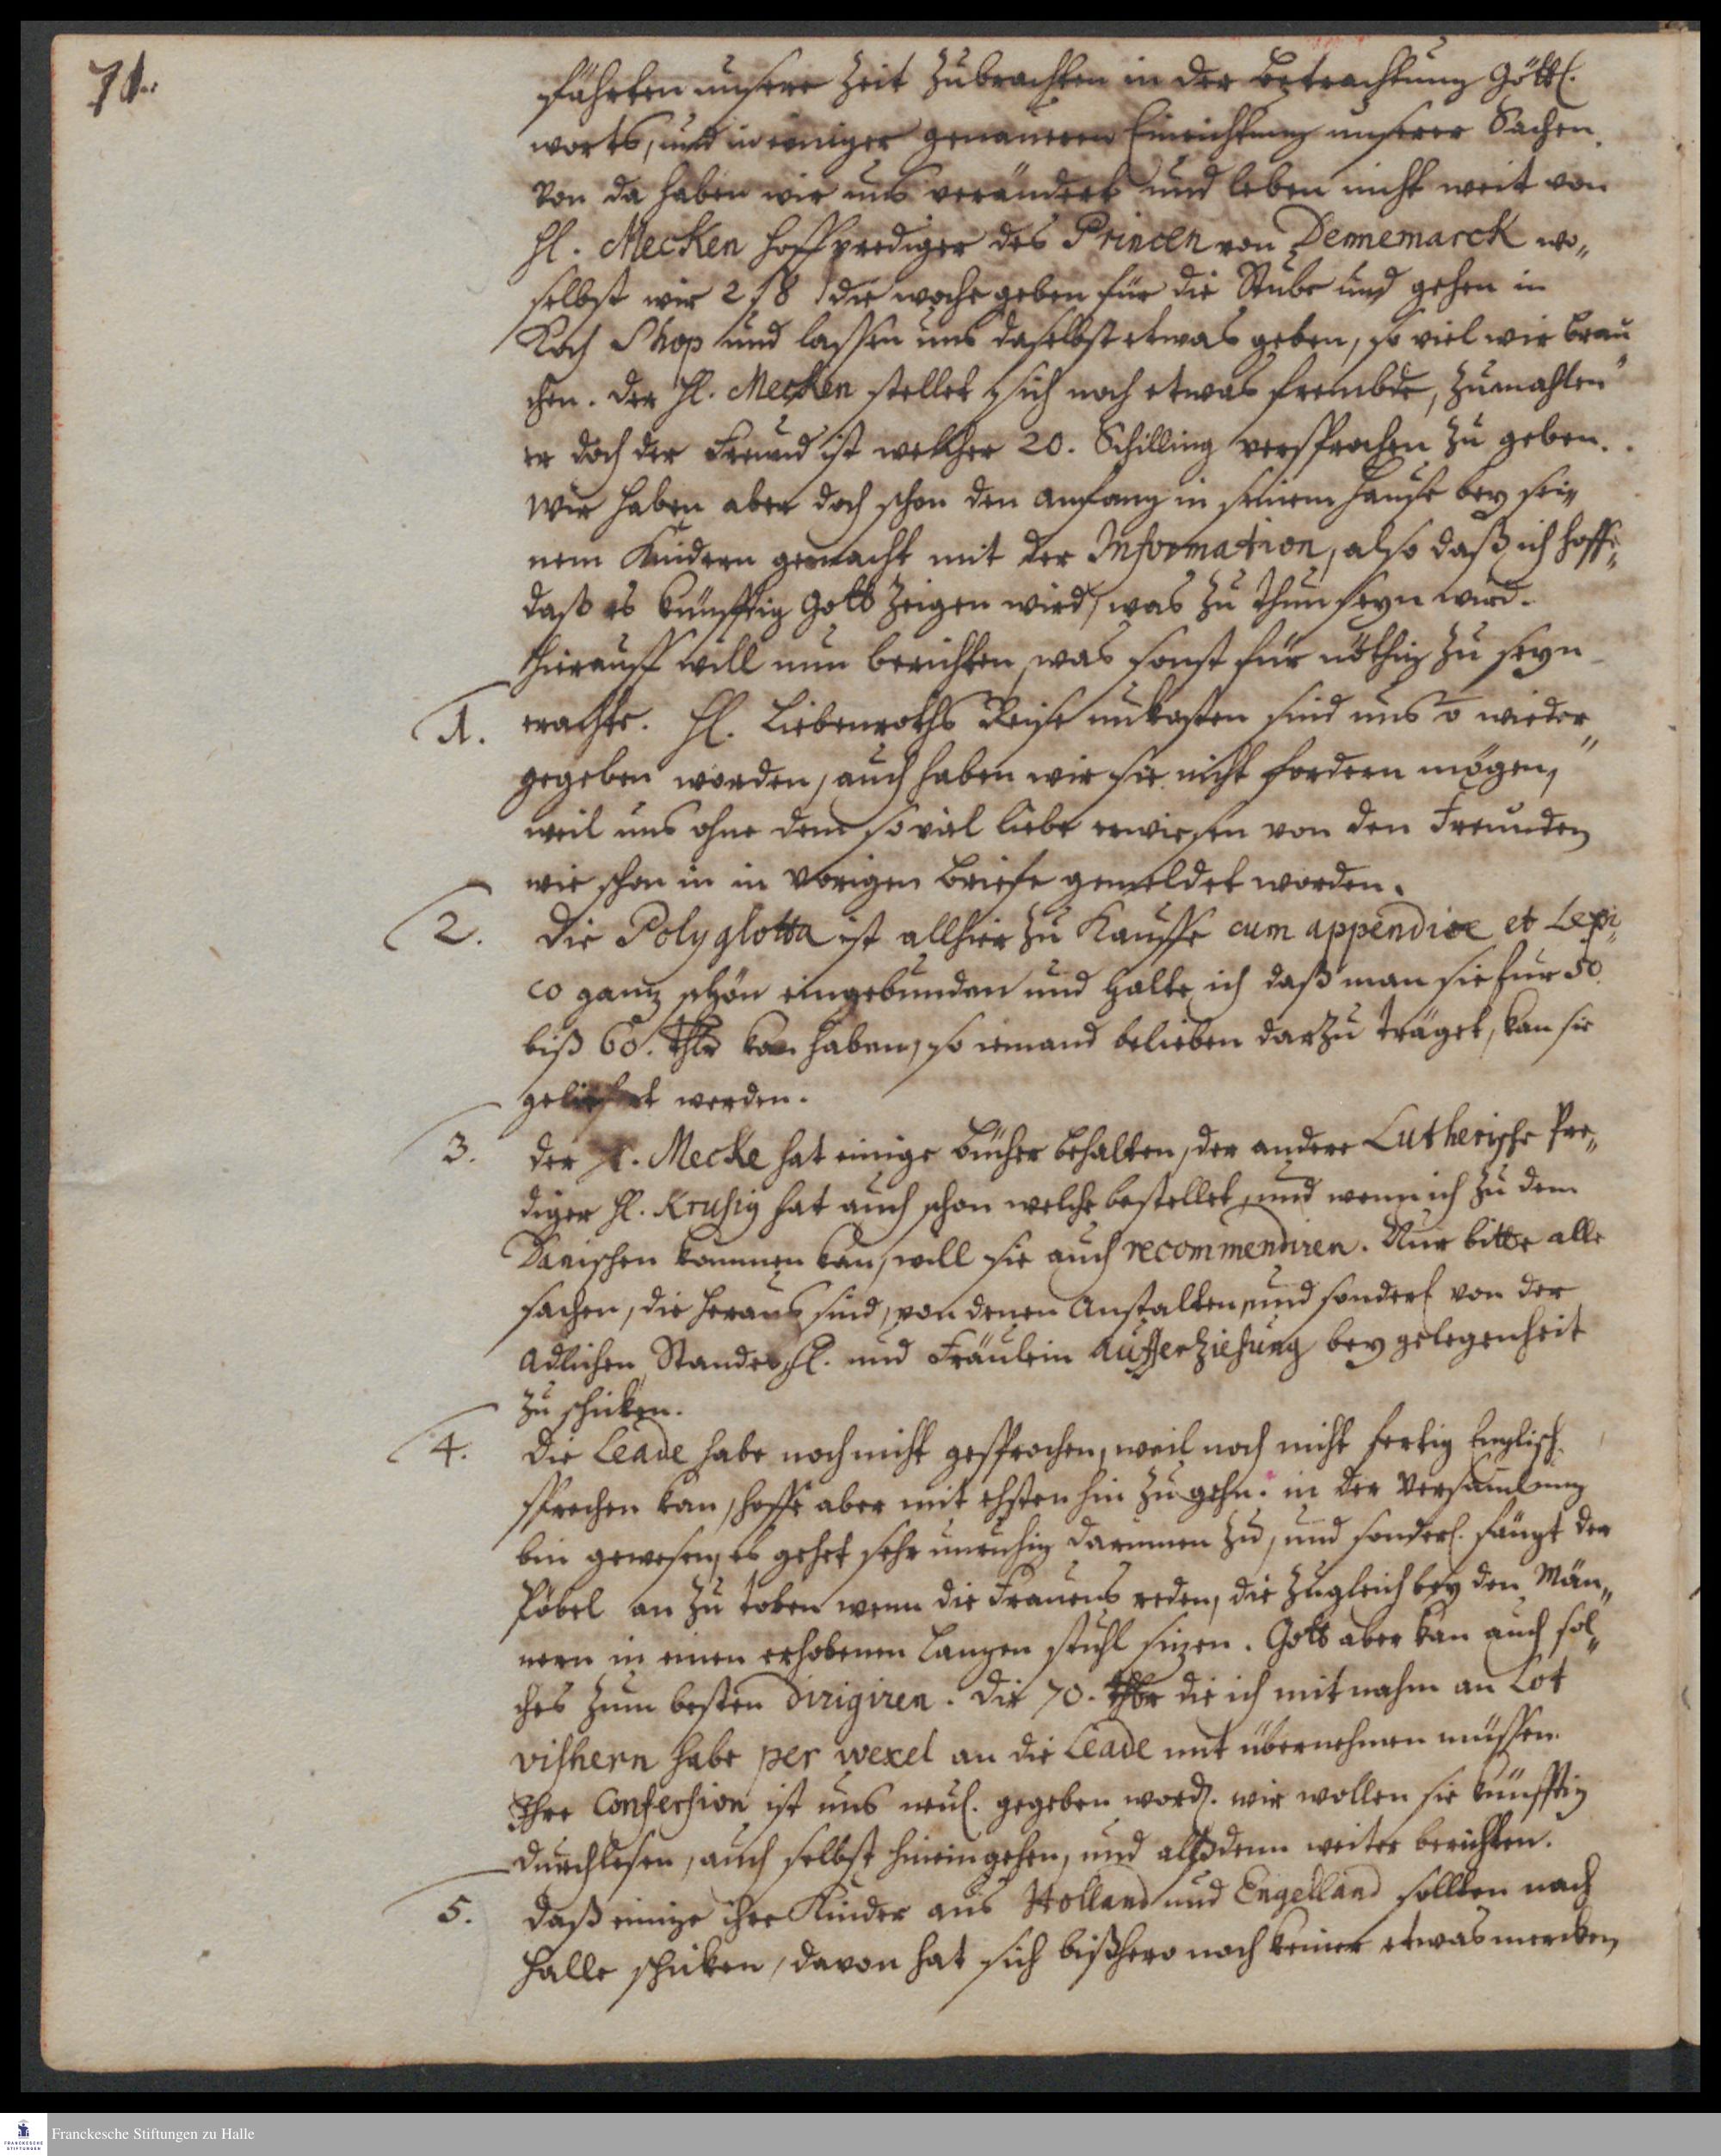 71.
fährten unsere Zeit zubrachten in der Betrachtung Göttl.
worts, und in einiger genaueren Einrichtung unserer Sachen.
Von da haben wir uns verändert und leben nicht weit von
Hl. Mecken Hoffprediger des Princen von Dennemarck wo„
selbst wir 2 die woche geben für die Stube und gehen in
Koch Shop und lassen uns daselbst etwas geben, so viel wir brau„
chen. Der Hl. Mecken stellet sich noch etwas frembde, zumahlen
er doch der Freund ist welcher 20. Schilling versprochen zu geben.
Wir haben aber doch schon den anfang in seinem Hause bey sei„
nem Kindern gemacht mit der Information, also daß ich hoffe,
daß es künfftig Gott zeigen wird, was zu thun seyn wird.
Hierauff will nun berichten, was sonst für nöthig zu seyn
1. erachte. Hl. Liebenroths Reise unkosten sind uns wieder„
gegeben worden, auch haben wir sie nicht fordern mögen,
weil uns ohne dem so viel liebe erwiesen von den Freunden
wie schon in in vorigen Briefe gemeldet worden.
2. Die Polyglotta ist allhier zu Kauffe cum appendice et Lexi„
co ganz schön eingebunden und halte ich daß man sie für 50.
biß 60. Thlr kan haben, so iemand belieben darzu träget, kan sie
geliefert werden.
3. Der Hl. Mecke hat einige bücher behalten, der andere Lutherische Pre„
diger Hl. Krusig hat auch schon welche bestellet, und wenn ich zu dem
Dänischen kommen kan, will sie auch recommendiren. Nur bitte alle
sachen, die heraus sind, von denen Anstalten, und sonderl von der
Adlichen Standes Hl. und Fräulein Aufferziehung bey gelegenheit
zu schicken.
4. Die Leade habe noch nicht gesprochen, weil noch nicht fertig Englisch
sprechen kan, hoffe aber mit ehsten hin zu gehn. in der Versamlung
bin gewesen, es gehet sehr unruhig darinnen zu, und sonderl. fängt der
Pöbel an zu toben wenn die Frauens reden, die zugleich bey den Män„
nern in einen erhobenen langen stuhl sizen. Gott aber kan auch sol„
ches zum besten dirigiren. Die 70. Thlr die ich mit nahm an Lot
vishern habe per wexel an die Leade mit übernehmen müssen.
Ihre Confession ist uns neul. gegeben word. wir wollen sie künfftig
durchlesen, auch selbst hineingehen, und alßdenn weiter berichten.
5. Daß einige ihre Kinder aus Holland und Engelland sollten nach
Halle schicken, davon hat sich bißhero noch keiner etwas mercken
Franckesche Stiftungen zu Halle
FRANCKESCHE
STIFTUNGEN